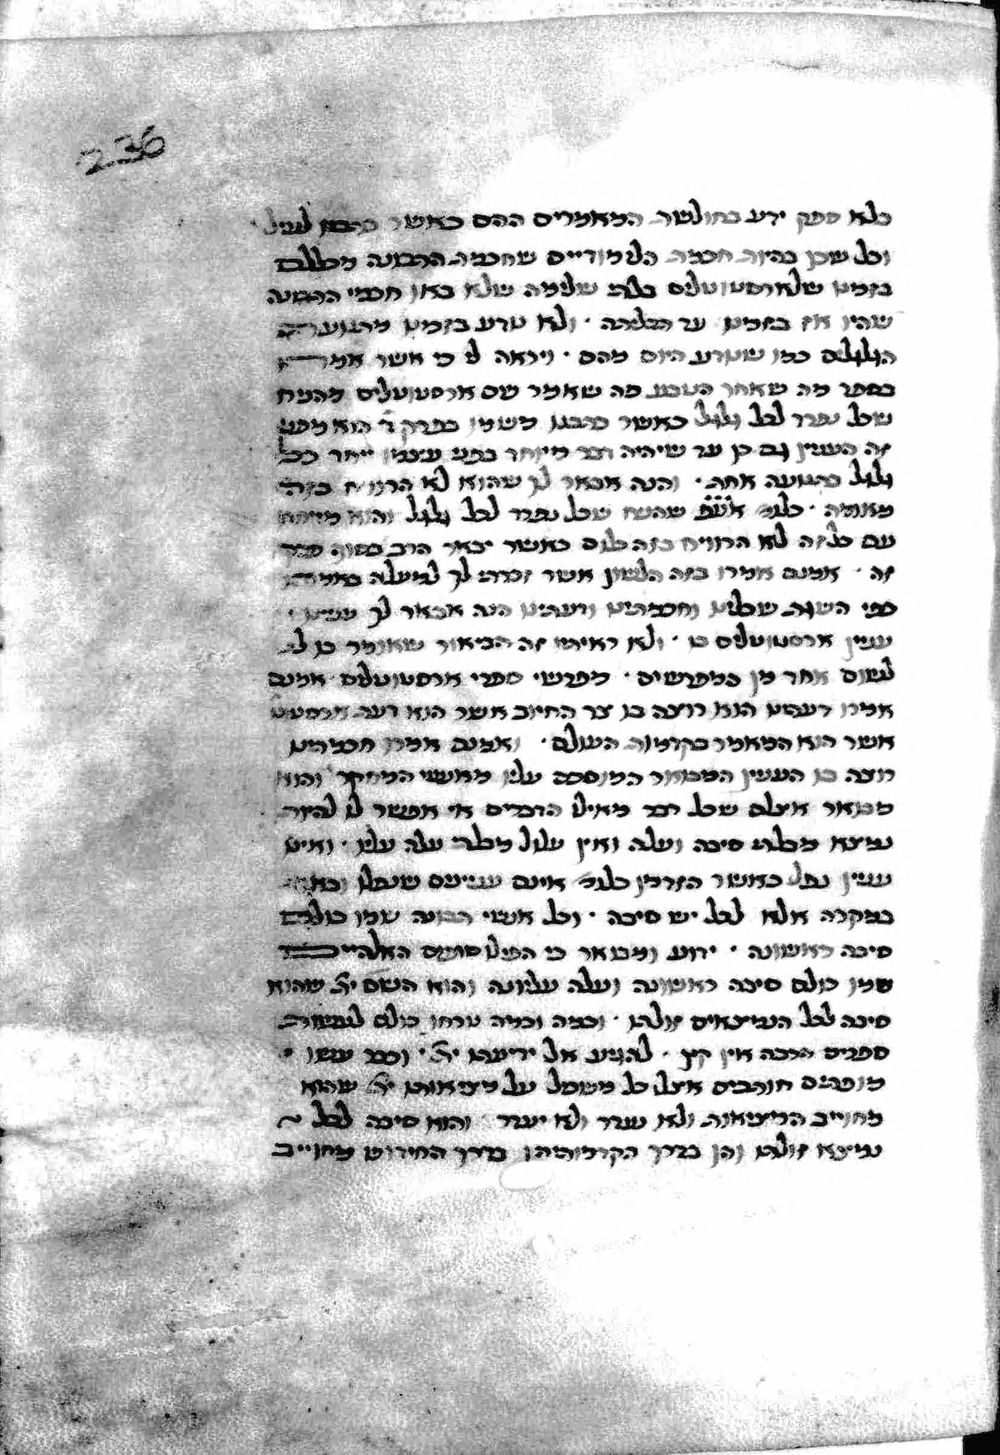 236
בלא ספק ידע בחולשת המאמרים ההם כאשר כתבתי לעיל
וכל שכן בהיות חכמת הלימודיים שחכמת התכונה מכללם
בזמן שלארסטוטליס בלתי שלימה שלא באו חכמי התכונה
שהיו אז בזמנו עד תכליתה . ולא נודע בזמנו מתנועות
הגלגלים כמו שנודע היום מהם . ויראה לי כי אשר אמר
בספר מה שאחר הטבע מה שאמר שם ארסטוטליס מהנח
שכל נפרד לכל גלגל כאשר כתבנו משמו בפרק ד' הוא מפני
זה הענין גם כן עד שיהיה דבר מיוחד בפני עצמו ייחד כל
גלגל בתנועה אחת . והנה אבאר לך שהוא לא הרויח בזה
מאומה . כלומר אע"פ שהניח שכל נפרד לכל גלגל והוא מיוחד
עם כל זה לא הרויח בזה כלום כאשר יבאר הרב בסוף פרק
זה . אמנם אמרו בזה הלשון אשר זכרתי לך למעלה באמרו
כפי השגת שכלינו וחכמתינו ודעתינו הנה אבאר לך ענינו .
ענין ארסטוטליס בו . ולא ראיתי זה הביאור שאומר בו לי
לשום אחד מן המפרשים . מפרשי ספרי ארסטוטליס אמנם
אמרו דעתינו הוא רוצה בו צד החיוב אשר הוא דעת ארסטו
אשר הוא המאמר בקדמות העולם . ואמנם אמרו חכמתינו
רוצה בו הענין המבואר המוסכם עליו מאנשי המחקר והוא
מבואר אצלם שכל דבר מאילו הדברים אי אפשר לו להיות
נמצא מבלתי סיבה ועלה ואין עלול מבלתי עלה עליו . ואינו
ענין נפל כאשר הזדמן כלומר אינם עניינים שנפלו ובאו
במקרה אלא לכל יש סיבה . וכל אנשי תבונה שמו כולם
סיבה ראשונה . ידוע ומבואר כי הפילוסופים האלהיים
שמו כולם סיבה ראשונה ועלה עליונה והוא השם ית' שהוא
סיבה לכל הנמצאים זולתו . וכמה וכמה טרחו כולם לעשות
ספרים הרבה אין קץ . להגיע אל ידיעתו ית' . וכבר עשו
מופתים חותכים אצלו כל משכל על מציאותו ית' שהוא
מחוייב המציאות ולא נעדר ולא יעדר והוא סיבה לכל
נמצא זולתו והן בדרך הקדמותיהן בדרך החידוש מחוייב